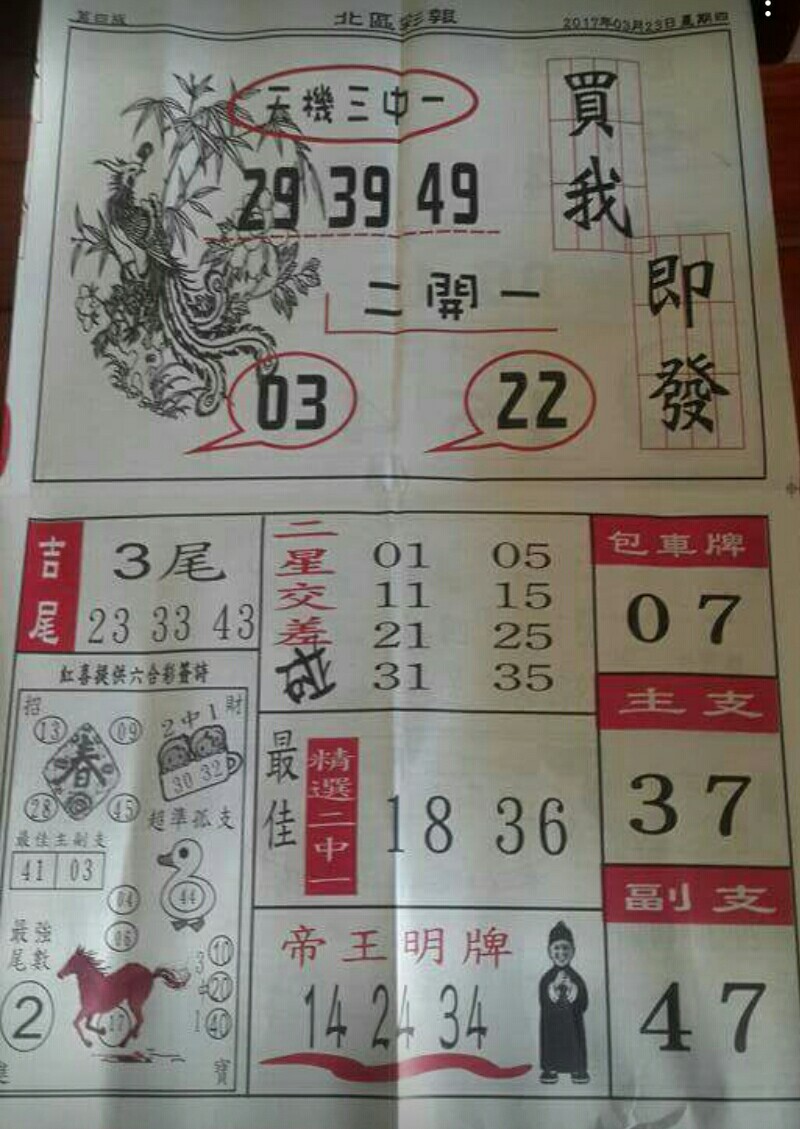 第四版 北區彩報 2017年03月23日星期四
天機三中一
29 39 49
二開一
03 22
買我
即發
吉尾
3尾
23 33 43
二星交差
01 05
11 15
21 25
31 35
包車牌
07
主支
37
副支
47
紅喜提供六合彩簽詩
招 財
13 09
春
28 45
2中1
30 32
超準孤支
44
最佳主副支
41 03
04
06
17
最強尾數
2
3中1
10
20
40
寶
最佳
精選二中一
18 36
帝王明牌
14 24 34